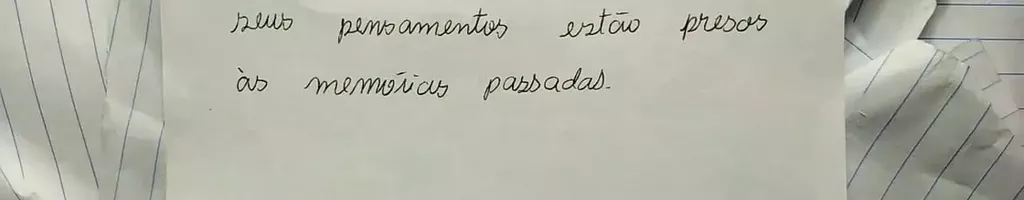 seus pensamentos estão presos
às memórias passadas.